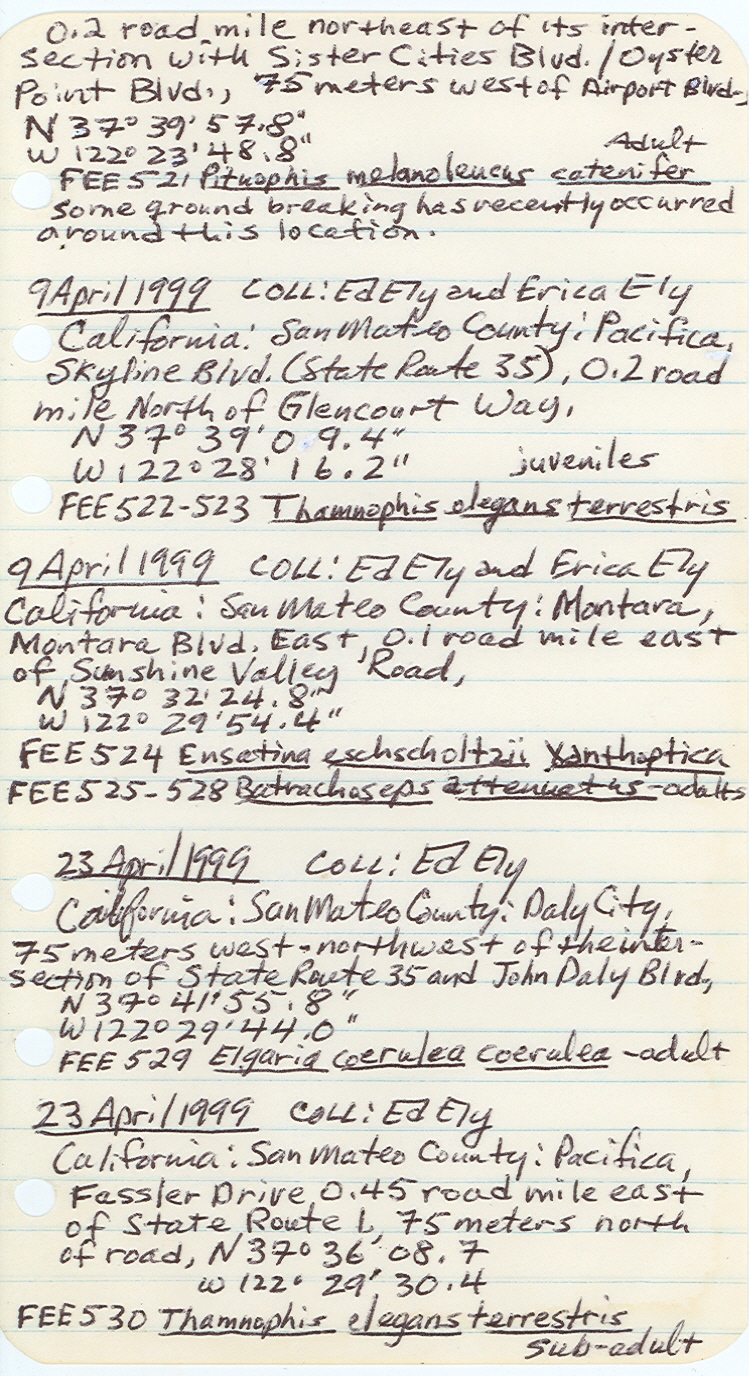 0.2 road mile northeast of its inter-
section with Sister Cities Blvd. / Oyster
Point Blvd., 75 meters west of Airport Blvd.,
N 37° 39' 57.8"
W 122° 23' 48.8" Adult
FEE 521 Pituophis melanoleucus catenifer
some ground breaking has recently occurred
around this location.
9 April 1999 COLL: Ed Ely and Erica Ely
California: San Mateo County: Pacifica,
Skyline Blvd. (State Route 35), 0.2 road
mile North of Glencourt Way,
N 37° 39' 0 9.4"
W 122° 28' 16.2" juveniles
FEE 522-523 Thamnophis elegans terrestris
9 April 1999 COLL: Ed Ely and Erica Ely
California: San Mateo County: Montara,
Montara Blvd. East, 0.1 road mile east
of Sunshine Valley Road,
N 37° 32' 24.8"
W 122° 29' 54.4"
FEE 524 Ensatina eschscholtzii xanthoptica
FEE 525-528 Batrachoseps attenuatus - adults
23 April 1999 COLL: Ed Ely
California: San Mateo County: Daly City,
75 meters west-northwest of the inter-
section of State Route 35 and John Daly Blvd,
N 37° 41' 55.8"
W 122° 29' 44.0"
FEE 529 Elgaria coerulea coerulea - adult
23 April 1999 COLL: Ed Ely
California: San Mateo County: Pacifica,
Fassler Drive 0.45 road mile east
of State Route 1, 75 meters north
of road, N 37° 36' 08.7
W 122° 29' 30.4
FEE 530 Thamnophis elegans terrestris
sub-adult